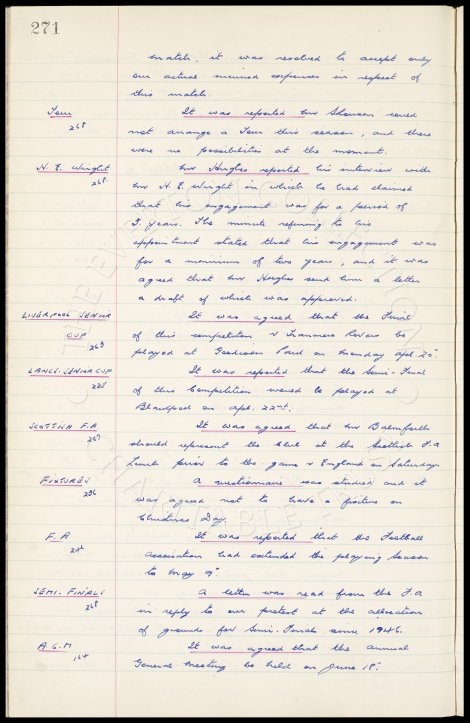 271
match, it was resolved to accept only
our actual incurred expenses in respect of
this match.
Tour
268
It was reported Mr could
not arrange a Tour this season, and there
were no possibilities at the moment.
H. E. Wright
268
Mr Hughes reported his interview with
Mr H. E. Wright in which he had claimed
that his engagement was for a period of
5 years. The minute referring to his
appointment stated that his engagement was
for a minimum of two years, and it was
agreed that Mr Hughes send him a letter
a draft of which was approved.
LIVERPOOL SENIOR
CUP
269
It was agreed that the Final
of this competition v Tranmere Rovers be
played at Goodison Park on Monday Apl. 20th
LANCS. SENIOR CUP
It was reported that the Semi-Final
of this Competition would be played at
Blackpool on Apl. 22nd.
SCOTTISH F.A
267
It was agreed that Mr Balmforth
should represent the Club at the Scottish F.A
Lunch prior to the game v England on Saturday.
FIXTURES
A questionnaire was studied and it
was agreed not to have a fixture on
Christmas Day.
F. A
It was reported that the Football
Association had extended the playing season
to May 9th.
SEMI-FINALS
268
A letter was read from the F.A
in reply to our protest at the allocation
of grounds for Semi-Finals since 1946.
A.G.M
164
It was agreed that the Annual
General Meeting be held on June 18th.
THE EVERTON COLLECTION
CHARITABLE TRUST